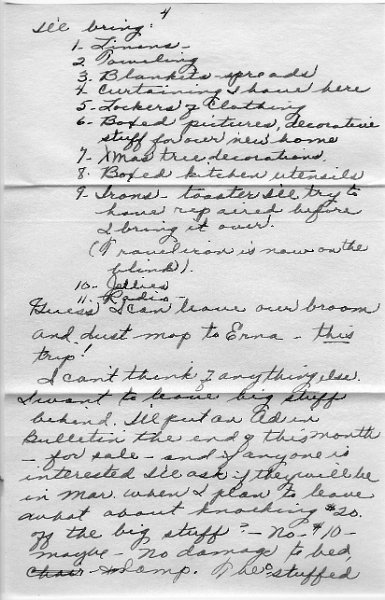 4
I'll bring:
1- Linens-
2 Toweling
3. Blankets - spreads
4 Curtaining I have here
5- Lockers of Clothing
6- Boxed pictures, decorative
stuff for our new home
7- Xmas tree decorations.
8. Boxed kitchen utensils
9- Irons - toaster I'll try to
have repaired before
I bring it over.
(Travel iron is now on the
blink).
10- Jellies
11. Radio -
Guess I can leave our broom
and dust mop to Erna - this
trip!
I can't think of anything else.
I want to leave big stuff
behind. I'll put an Ad in
Bulletin the end of this month
- for sale - and if anyone is
interested I'll ask if they will be
in Mar. when I plan to leave
what about knocking $20.
off the big stuff? - No - $10 -
maybe - No damage to bed,
chair lamp. The stuffed